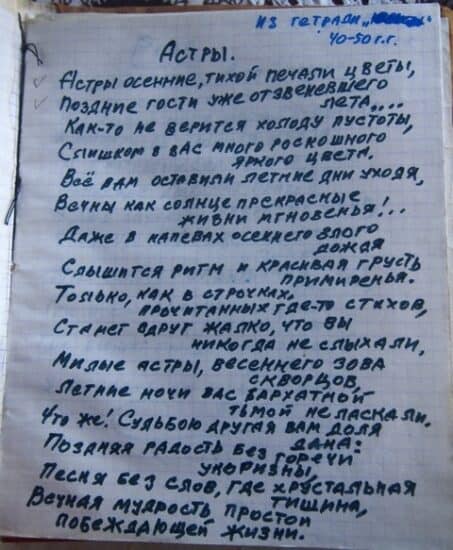 из тетради
40-50 г.г.
Астры.
Астры осенние, тихой печали цветы,
Поздние гости уже отзвеневшего
лета....
Как-то не верится холоду пустоты,
Слишком в вас много роскошного
яркого цвета.
Всё вам оставили летние дни уходя,
Вечны как солнце прекрасные
жизни мгновенья!..
Даже в напевах осеннего злого
дождя
Слышится ритм и красивая грусть
примиренья.
Только, как в строчках,
прочитанных где-то стихов,
Станет вдруг жалко, что вы
никогда не слыхали,
Милые астры, весеннего зова
скворцов,
Летние ночи вас бархатной
тьмой не ласкали.
Что же! Судьбою другая вам доля
дана:
Поздняя радость без горечи
укоризны,
Песня без слов, где хрустальная
тишина,
Вечная мудрость простой
побеждающей жизни.